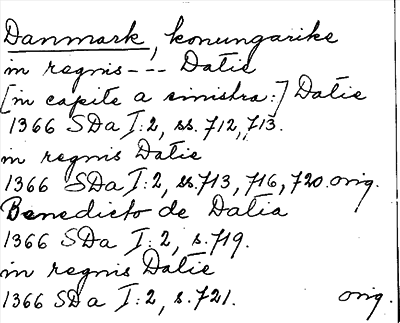 Danmark, konungarike
in regnis --- Datie
[in capite a sinistra:] Datie
1366 SDa I:2, ss. 712, 713.
in regnis Datie
1366 SDa I:2, ss. 713, 716, 720. orig.
Benedicto de Datia
1366 SDa I:2, s. 719.
in regnis Datie
1366 SDa I:2, s. 721. orig.